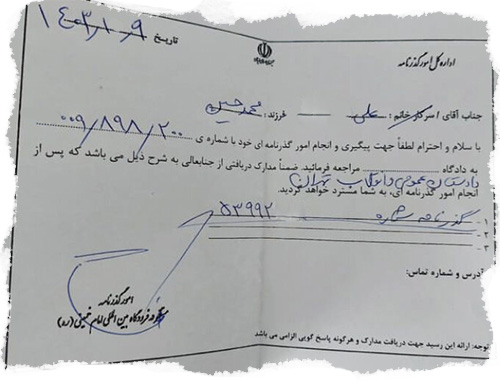 تاریخ ۱۴۰۳/۱۰/۹
اداره کل امور گذرنامه
جناب آقای / سرکار خانم : علی فرزند : محمد حسین
با سلام و احترام لطفاً جهت پیگیری و انجام امور گذرنامه ای خود با شماره ی ۰۰۹/۸۹۸/۲۰۰
به دادگاه دادستان عمومی و انقلاب تهران مراجعه فرمائید. ضمناً مدارک دریافتی از جنابعالی به شرح ذیل می باشد که پس از
انجام امور گذرنامه ای، به شما مسترد خواهد گردید.
۱ - گذرنامه شماره ۵۳۹۹۲
۲ -
۳ -
آدرس و شماره تماس:
امور گذرنامه
فرودگاه بین المللی امام خمینی (ره)
توجه: ارائه این رسید جهت دریافت مدارک و هرگونه پاسخ گویی الزامی می باشد